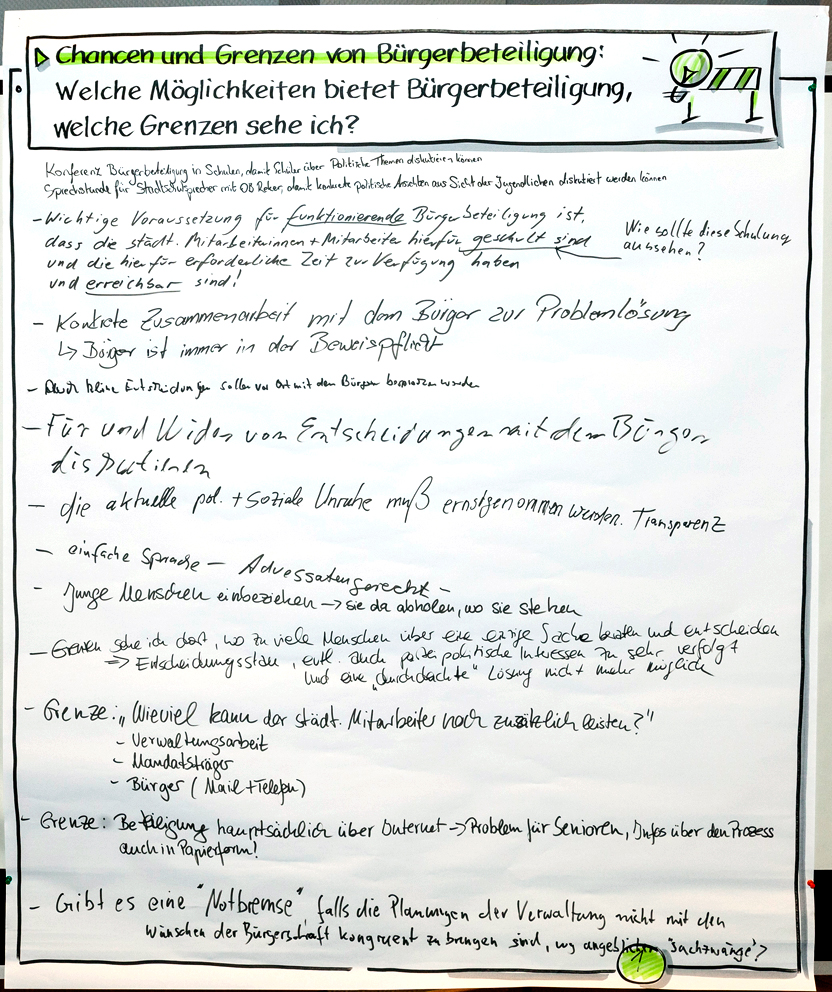 Chancen und Grenzen von Bürgerbeteiligung:
Welche Möglichkeiten bietet Bürgerbeteiligung,
welche Grenzen sehe ich?
Konferenz Bürgerbeteiligung in Schulen, damit Schüler über Politische Themen diskutieren können
Sprechstunde für Stadtschulsprecher mit OB Reker, damit konkrete politische Ansichten aus Sicht der Jugendlichen diskutiert werden können
- Wichtige Voraussetzung für funktionierende Bürgerbeteiligung ist,
dass die städt. Mitarbeiterinnen + Mitarbeiter hierfür geschult sind
und die hierfür erforderliche Zeit zur Verfügung haben
und erreichbar sind!
Wie sollte diese Schulung
aussehen?
- Konkrete Zusammenarbeit mit dem Bürger zur Problemlösung
↳ Bürger ist immer in der Beweispflicht
- Auch kleine Entscheidungen sollen vor Ort mit den Bürgern werden
- Für und Wider von Entscheidungen mit dem Bürger
disputieren
- die aktuelle pol. + soziale Unruhe muß ernstgenommen werden. Transparenz
- einfache Sprache - Adressatengerecht -
- Junge Menschen einbeziehen → sie da abholen, wo sie stehen
- Grenzen sehe ich dort, wo zu viele Menschen über eine einzige Sache beraten und entscheiden
⇒ Entscheidungsstau, evtl. auch parteipolitische Interessen zu sehr verfolgt
und eine „durchdachte" Lösung nicht mehr möglich
- Grenze: „Wieviel kann der städt. Mitarbeiter noch zusätzlich leisten?"
- Verwaltungsarbeit
- Mandatsträger
- Bürger (Mail + Telefon)
- Grenze: Beteiligung hauptsächlich über Internet → Problem für Senioren, Infos über den Prozess
auch in Papierform!
- Gibt es eine "Notbremse", falls die Planungen der Verwaltung nicht mit den
Wünschen der Bürgerschaft kongruent zu bringen sind, wg angeblichen "Sachzwänge"?